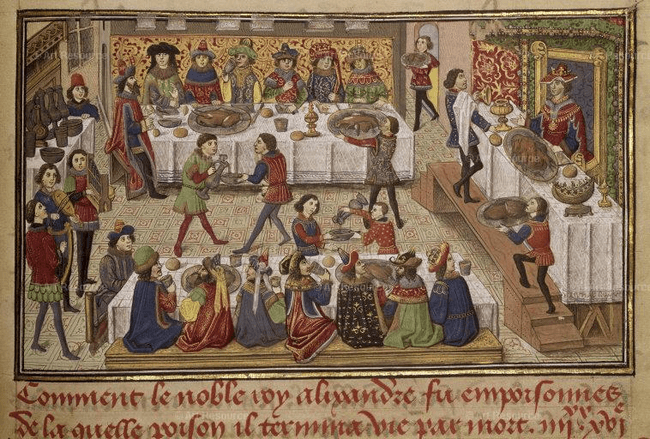 Comment le noble roy alixandre fu empoisonnes
de la quelle poison il termina vie par mort. iiiixx xvi